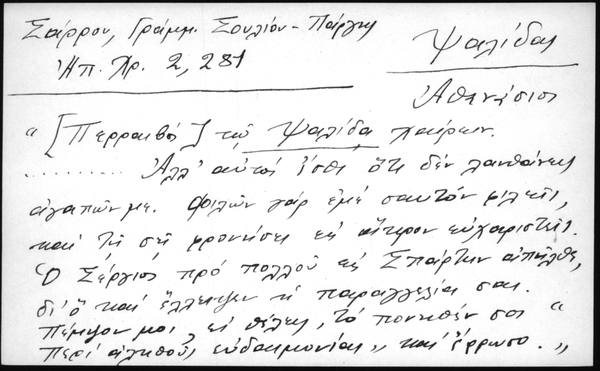 Σάρρου, Γράμμ. Σουλίου - Πάργης
Ἠπ. Χρ. 2, 281
Ψαλίδας
Ἀθανάσιος
“ [Περραιβός] τῷ Ψαλίδᾳ χαίρειν.
......... Ἀλλ' αὐτός ἴσθι ὅτι δέν λανθάνεις
ἀγαπῶν με. Φιλῶν γάρ ἐμέ σαυτόν φιλεῖς,
καί τῇ σῇ φρονήσει εἰς εὐχαριστεῖς.
Ὁ Σέργιος πρό πολλοῦ εἰς Σπάρτην ἀπῆλθε,
δι' ὅ καί ἔλλειψεν ἡ παραγγελία σας.
Πέμψον μοι, εἰ θέλεις, τό πονηθέν σοι “
περί ἀληθοῦς εὐδαιμονίας,, καί ἔρρωσο. ”